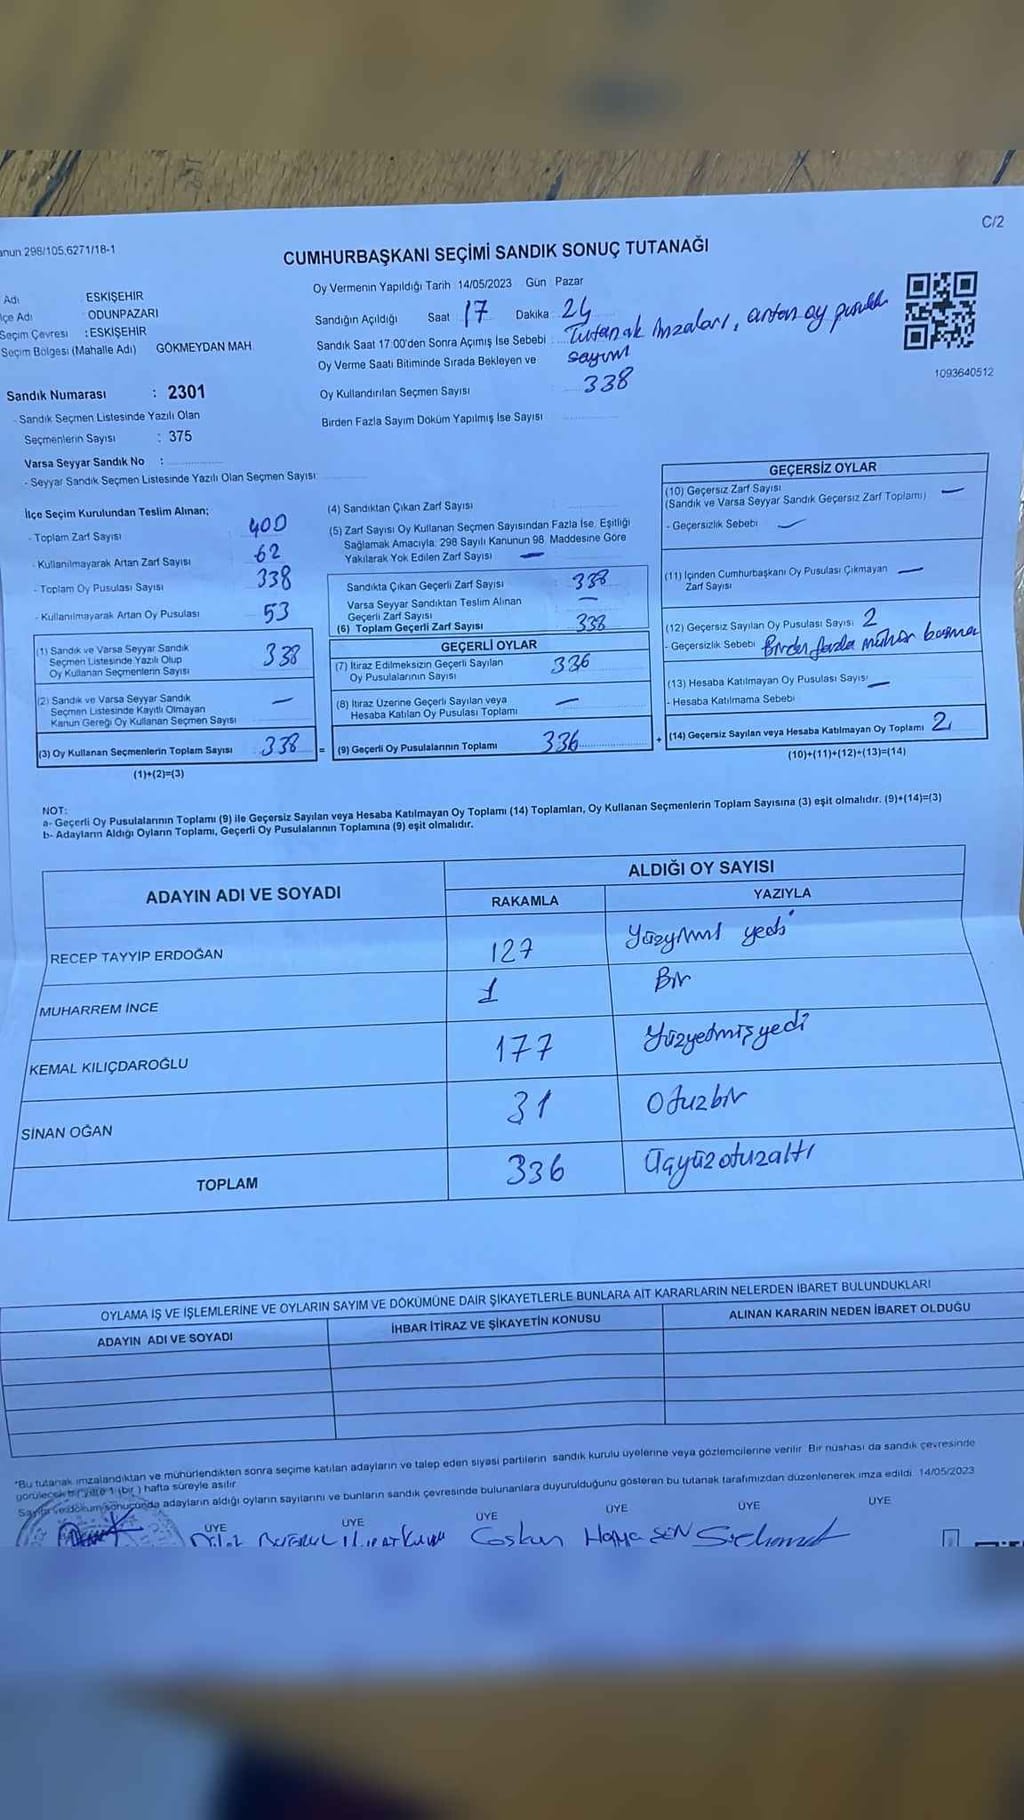 C/2
anun 298/105,6271/18-1
CUMHURBAŞKANI SEÇİMİ SANDIK SONUÇ TUTANAĞI
Adı ESKİŞEHİR
lçe Adı : ODUNPAZARI
Seçim Çevresi : ESKİŞEHİR
Seçim Bölgesi (Mahalle Adı) GÖKMEYDAN MAH.
Sandık Numarası : 2301
- Sandık Seçmen Listesinde Yazılı Olan
Seçmenlerin Sayısı : 375
Varsa Seyyar Sandık No :
- Seyyar Sandık Seçmen Listesinde Yazılı Olan Seçmen Sayısı:
Oy Vermenin Yapıldığı Tarih 14/05/2023 Gün Pazar
Sandığın Açıldığı Saat 17 Dakika 24
Sandık Saat 17:00'den Sonra Açımış İse Sebebi Tutanak imzaları, artan oy pusula
Oy Verme Saati Bitiminde Sırada Bekleyen ve sayım
Oy Kullandırılan Seçmen Sayısı 338
Birden Fazla Sayım Döküm Yapılmış İse Sayısı
1093640512
İlçe Seçim Kurulundan Teslim Alınan;
- Toplam Zarf Sayısı 400
- Kullanılmayarak Artan Zarf Sayısı 62
- Toplam Oy Pusulası Sayısı 338
- Kullanılmayarak Artan Oy Pusulası 53
(1) Sandık ve Varsa Seyyar Sandık
Seçmen Listesinde Yazılı Olup
Oy Kullanan Seçmenlerin Sayısı 338
(2) Sandık ve Varsa Seyyar Sandık
Seçmen Listesinde Kayıtlı Olmayan
Kanun Gereği Oy Kullanan Seçmen Sayısı —
(3) Oy Kullanan Seçmenlerin Toplam Sayısı 338 =
(1)+(2)=(3)
(4) Sandıktan Çıkan Zarf Sayısı
(5) Zarf Sayısı Oy Kullanan Seçmen Sayısından Fazla İse, Eşitliği
Sağlamak Amacıyla; 298 Sayılı Kanunun 98. Maddesine Göre
Yakılarak Yok Edilen Zarf Sayısı —
Sandıkta Çıkan Geçerli Zarf Sayısı 338
Varsa Seyyar Sandıktan Teslim Alınan
Geçerli Zarf Sayısı —
(6) Toplam Geçerli Zarf Sayısı 338
GEÇERLİ OYLAR
(7) İtiraz Edilmeksizin Geçerli Sayılan
Oy Pusulalarının Sayısı 336
(8) İtiraz Üzerine Geçerli Sayılan veya
Hesaba Katılan Oy Pusulası Toplamı —
(9) Geçerli Oy Pusulalarının Toplamı 336 +
GEÇERSİZ OYLAR
(10) Geçersiz Zarf Sayısı —
(Sandık ve Varsa Seyyar Sandık Geçersiz Zarf Toplamı)
- Geçersizlik Sebebi —
(11) İçinden Cumhurbaşkanı Oy Pusulası Çıkmayan —
Zarf Sayısı
(12) Geçersiz Sayılan Oy Pusulası Sayısı 2
- Geçersizlik Sebebi Birden fazla mühür basma
(13) Hesaba Katılmayan Oy Pusulası Sayısı —
- Hesaba Katılmama Sebebi
(14) Geçersiz Sayılan veya Hesaba Katılmayan Oy Toplamı 2
(10)+(11)+(12)+(13)=(14)
NOT:
a- Geçerli Oy Pusulalarının Toplamı (9) ile Geçersiz Sayılan veya Hesaba Katılmayan Oy Toplamı (14) Toplamları, Oy Kullanan Seçmenlerin Toplam Sayısına (3) eşit olmalıdır. (9)+(14)=(3)
b- Adayların Aldığı Oyların Toplamı, Geçerli Oy Pusulalarının Toplamına (9) eşit olmalıdır.
ADAYIN ADI VE SOYADI ALDIĞI OY SAYISI
RAKAMLA YAZIYLA
RECEP TAYYİP ERDOĞAN 127 Yüzyirmi yedi
MUHARREM İNCE 1 Bir
KEMAL KILIÇDAROĞLU 177 Yüzyetmişyedi
SİNAN OĞAN 31 Otuzbir
TOPLAM 336 Üçyüzotuzaltı
OYLAMA İŞ VE İŞLEMLERİNE VE OYLARIN SAYIM VE DÖKÜMÜNE DAİR ŞİKAYETLERLE BUNLARA AİT KARARLARIN NELERDEN İBARET BULUNDUKLARI
ADAYIN ADI VE SOYADI İHBAR İTİRAZ VE ŞİKAYETİN KONUSU ALINAN KARARIN NEDEN İBARET OLDUĞU
*Bu tutanak imzalandıktan ve mühürlendikten sonra seçime katılan adayların ve talep eden siyasi partilerin sandık kurulu üyelerine veya gözlemcilerine verilir. Bir nüshası da sandık çevresinde
görülecek bir yere 1 (bir) hafta süreyle asılır.
Sayım ve döküm sonucunda adayların aldığı oyların sayılarını ve bunların sandık çevresinde bulunanlara duyurulduğunu gösteren bu tutanak tarafımızdan düzenlenerek imza edildi. 14/05/2023
ÜYE ÜYE ÜYE ÜYE ÜYE ÜYE
Coskun